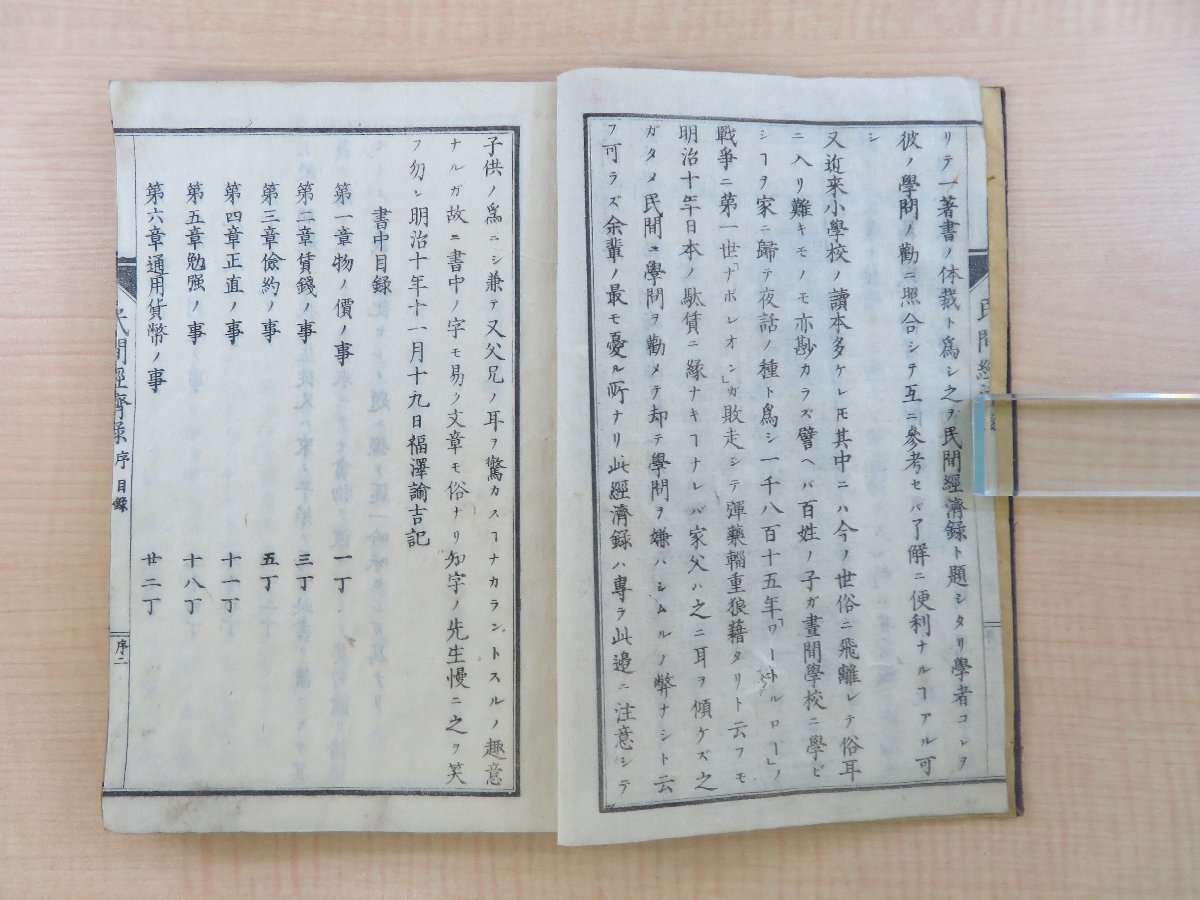 リテ一著書ノ体裁ト為シ之ヲ民間經濟録ト題シタリ學者コレヲ
彼ノ學問ノ勸ニ照合シテ互ニ參考セバ了解ニ便利ナルヿアル可
シ
又近来小學校ノ讀本多ケレ𪜈其中ニハ今ノ世俗ニ飛離レテ俗耳
ニ入リ難キモノモ亦尠カラズ譬ヘバ百姓ノ子ガ晝間學校ニ學ビ
シヿヲ家ニ歸テ夜話ノ種ト為シ一千八百十五年「ワートルロー」ノ
戰爭ニ第一世「ナポレオン」ガ敗走シテ彈藥輜重狼藉タリト云フモ
明治十年日本ノ駄賃ニ縁ナキヿナレバ家父ハ之ニ耳ヲ傾ケズ之
ガタメ民間ニ學問ヲ勸メテ却テ學問ヲ嫌ハシムルノ弊ナシト云
フ可ラズ余輩ノ最モ憂ル所ナリ此經濟録ハ專ラ此邉ニ注意シテ
民間經濟録
子供ノ為ニシ兼テ又父兄ノ耳ヲ驚カスヿナカラントスルノ趣意
ナルガ故ニ書中ノ字モ易ク文章モ俗ナリ知字ノ先生慢ニ之ヲ笑
フ勿レ明治十年十一月十九日福澤諭吉記
書中目録
第一章物ノ價ノ事 一丁
第二章賃錢ノ事 三丁
第三章儉約ノ事 五丁
第四章正直ノ事 十一丁
第五章勉强ノ事 十八丁
第六章通用貨幣ノ事 廿二丁
民間經濟録序目録 序二